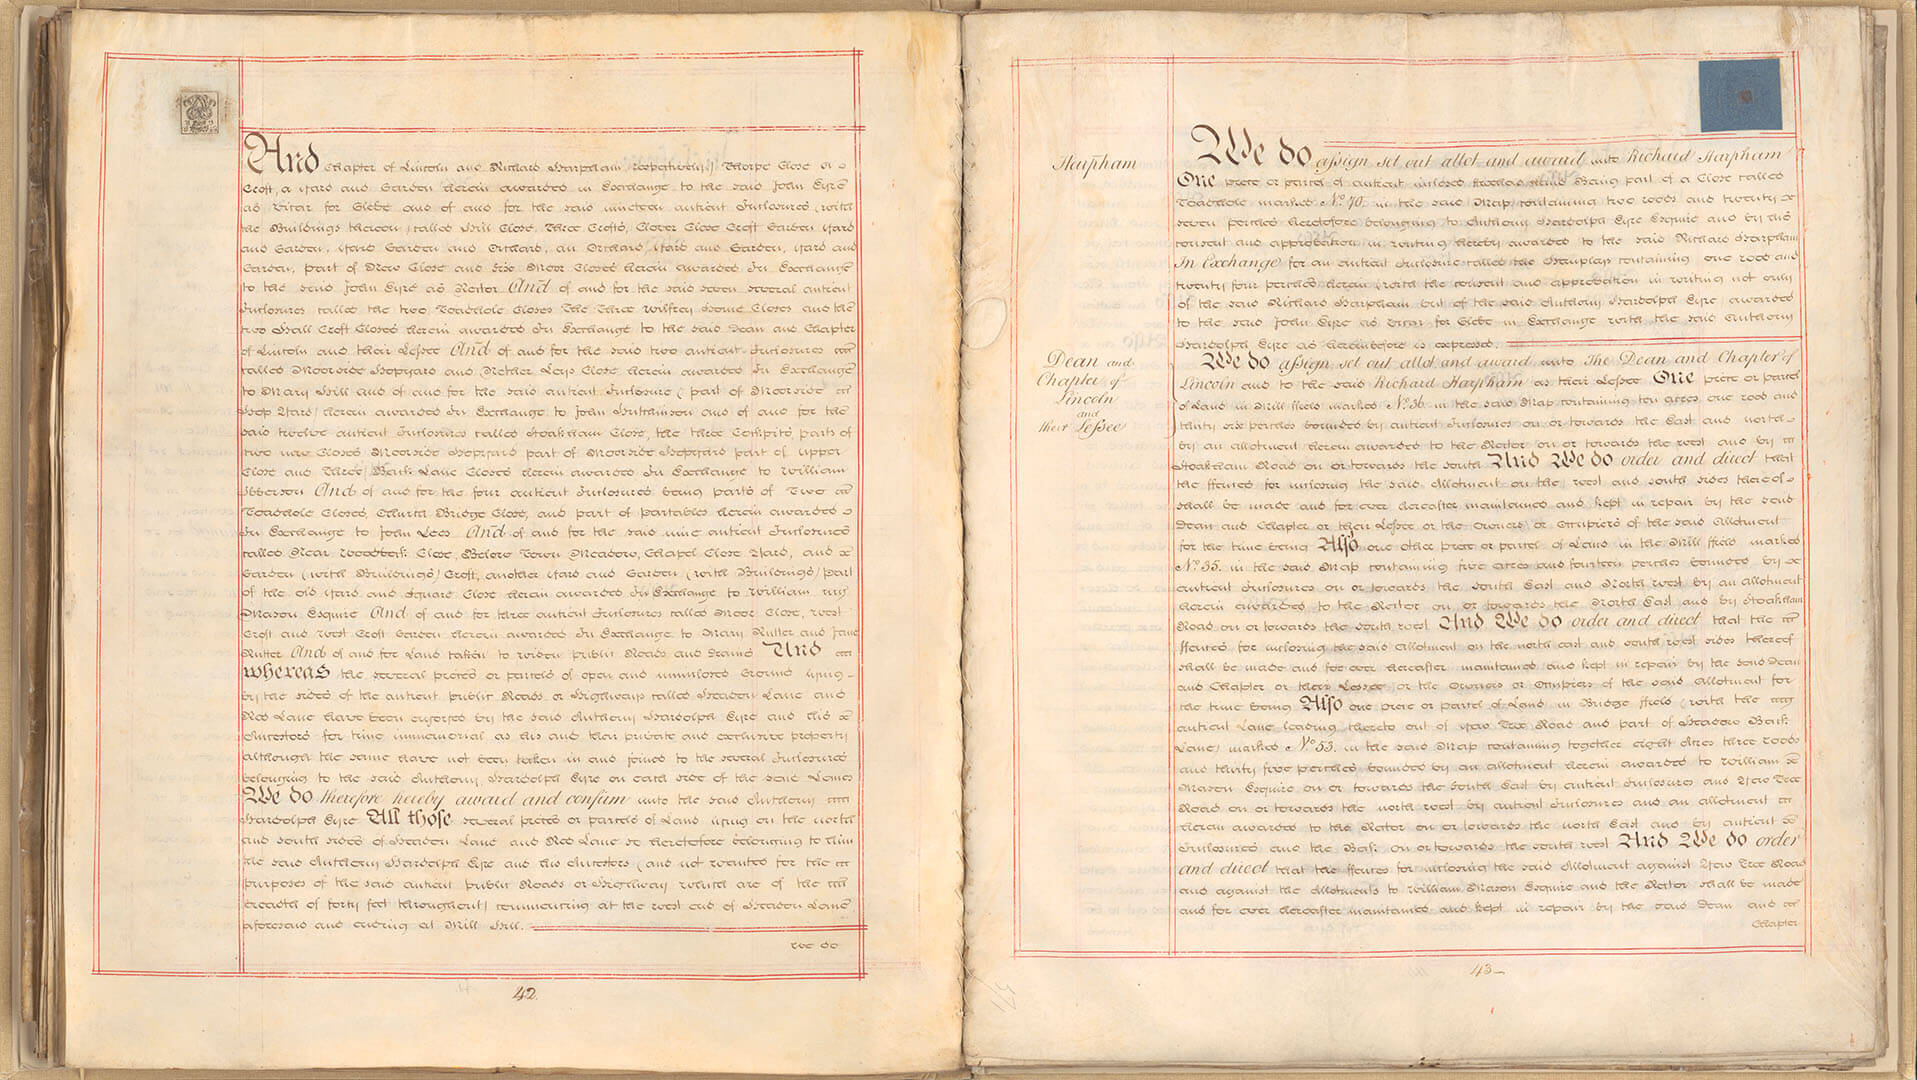 And Chapter of Lincoln and Richard Harpham respectively) Thorpe Close or
Croft, a Yard and Garden herein awarded in Exchange to the said John Eyre
as Vicar for Glebe and of and for the said nineteen antient Inclosures (with
the Buildings thereon) called Hill Close, Three Crofts, Clover Close Croft Garden Yard
and Garden, Yard Garden and Orchard, an Orchard, Yard and Garden, Yard and
Garden, part of New Close and six Moor Closes herein awarded In Exchange
to the said John Eyre as Rector And of and for the said seven several antient
Inclosures called the two Toadhole Closes The Three Wilfrey Home Closes and the
two Hall Croft Closes herein awarded In Exchange to the said Dean and Chapter
of Lincoln and their Lessee And of and for the said two antient Inclosures
called Moorside Hopyard and Nether Leys Close herein awarded In Exchange
to Mary Hill and of and for the said antient Inclosure (part of Moorside
Hop Yard) herein awarded In Exchange to John Hutchinson and of and for the
said twelve antient Inclosures called Stoakham Close, the three Cockpits, parts of
two new Closes Moorside Hopyard part of Moorside Hopyard part of upper
Close and Three Back Lane Closes herein awarded In Exchange to William
Ibberson And of and for the four antient Inclosures being parts of Two
Toadhole Closes, Church Bridge Close, and part of Partables herein awarded
In Exchange to John Lees And of and for the said nine antient Inclosures
called Near Woodbeck Close, Below Town Meadow, Chapel Close Yard, and
Garden (with Buildings) Croft, another Yard and Garden (with Buildings) part
of the old Yard and Square Close herein awarded In Exchange to William
Mason Esquire And of and for three antient Inclosures called Moor Close, West
Croft and West Croft Garden herein awarded In Exchange to Mary Rutter and Jane
Rutter And of and for Land taken to widen public Roads and Drains And
whereas the several pieces or parcels of open and uninclosed Ground lying
by the sides of the antient public Roads or Highways called Headon Lane and
Red Lane have been enjoyed by the said Anthony Hardolph Eyre and his
Ancestors for time immemorial as his and their private and exclusive property
although the same have not been taken in and joined to the several Inclosures
belonging to the said Anthony Hardolph Eyre on each side of the said Lanes
We do therefore hereby award and confirm unto the said Anthony
Hardolph Eyre All those several pieces or parcels of Land lying on the north
and south sides of Headon Lane and Red Lane so heretofore belonging to him
the said Anthony Hardolph Eyre and his Ancestors (and not wanted for the
purposes of the said antient public Roads or Highway which are of the
breadth of forty feet throughout) commencing at the west end of Headon Lane
aforesaid and ending at Mill Hill.
We do
42.
Harpham
We do assign set out allot and award unto Richard Harpham
One piece or parcel of antient inclosed being part of a Close called
Toadhole marked No. 70. in the said Map containing two roods and twenty
seven perches heretofore belonging to Anthony Hardolph Eyre Esquire and by his
consent and approbation in writing hereby awarded to the said Richard Harpham
In Exchange for an antient Inclosure called the containing one rood and
twenty four perches herein (with the consent and approbation in writing not only
of the said Richard Harpham but of the said Anthony Hardolph Eyre) awarded
to the said John Eyre as Vicar for Glebe in Exchange with the said Anthony
Hardolph Eyre as hereinbefore is expressed.
Dean and
Chapter of
Lincoln
and
their Lessee
We do assign set out allot and award unto The Dean and Chapter of
Lincoln and to the said Richard Harpham as their Lessee One piece or parcel
of Land in Mill ffield marked No. 36. in the said Map containing ten acres one rood and
thirty six perches bounded by antient Inclosures on or towards the East and north
by an allotment herein awarded to the Rector on or towards the west and by
Stoakham Road on or towards the south And We do order and direct that
the ffences for inclosing the said Allotment on the west and south sides thereof
shall be made and for ever hereafter maintained and kept in repair by the said
Dean and Chapter or their Lessee or the Owners or Occupiers of the said Allotment
for the time being Also one other piece or parcel of Land in the Mill ffield marked
No. 35. in the said Map containing five acres and fourteen perches bounded by
antient Inclosures on or towards the South East and North west by an allotment
herein awarded to the Rector on or towards the North East and by Stoakham
Road on or towards the south west And We do order and direct that the
ffences for inclosing the said Allotment on the north east and south west sides thereof
shall be made and for ever hereafter maintained and kept in repair by the said Dean
and Chapter or their Lessee or the Owners or Occupiers of the said Allotment for
the time being Also one piece or parcel of Land in Bridge ffield (with the
antient Lane leading thereto out of Yew Tree Road and part of Headon Back
Lane) marked No. 53. in the said Map containing together eight Acres three roods
and thirty five perches bounded by an allotment herein awarded to William
Mason Esquire on or towards the South East by antient Inclosures and Yew Tree
Road on or towards the north west by antient Inclosures and an allotment
herein awarded to the Rector on or towards the north East and by antient
Inclosures and the Beck on or towards the south west And We do order
and direct that the ffences for inclosing the said Allotment against Yew Tree Road
and against the Allotments to William Mason Esquire and the Rector shall be made
and for ever hereafter maintained and kept in repair by the said Dean and
Chapter
43